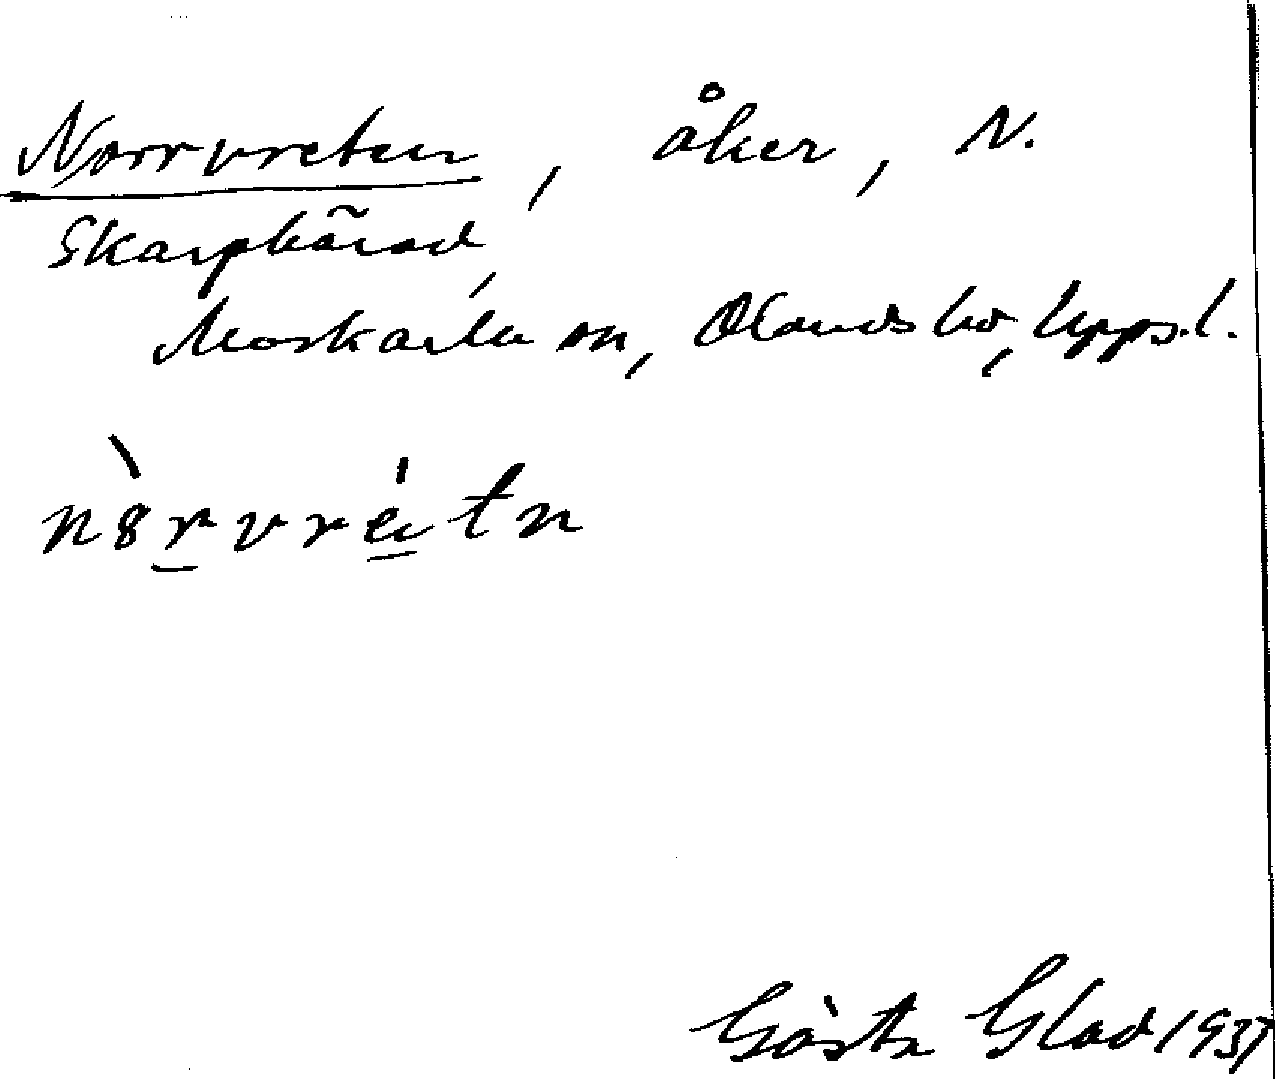 Norrvreten, åker, N.
Skarphärad,
Morkarla sn, Olands hd, Upps. l.
Gösta Glad 1937